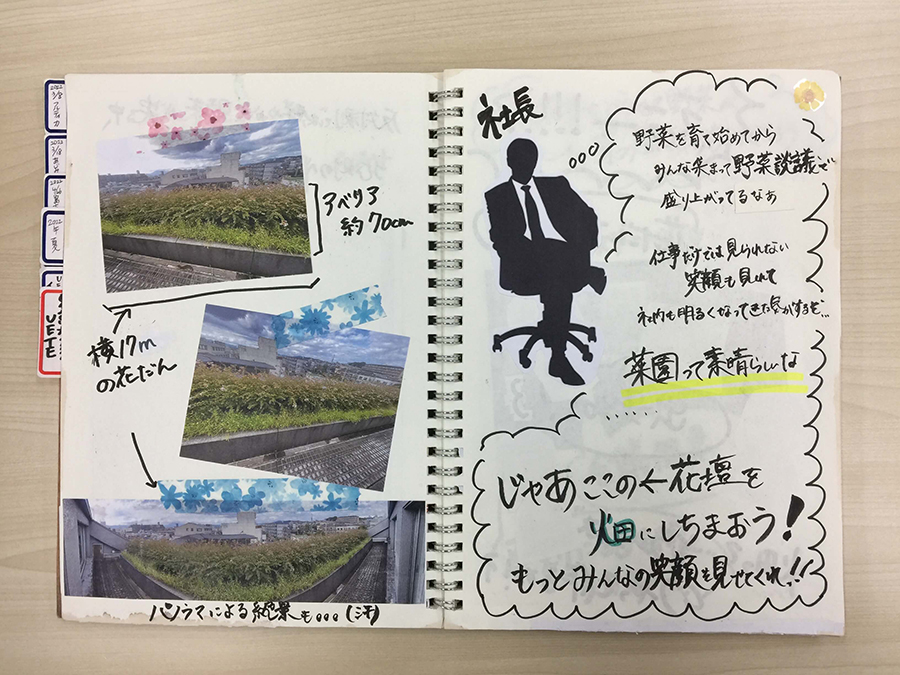 アベリア
約70cm
横17m
の花だん
パノラマによる絶景も。。。(汗)
社長
野菜を育て始めてから
みんな集まって野菜談議で
盛り上がってるなぁ
仕事だけでは見られない
笑顔も見れて
社内も明るくなってきた気がするぞ…
菜園って素晴らしいな
じゃあここの←花壇を
畑にしちまおう!
もっとみんなの笑顔を見せてくれ!!